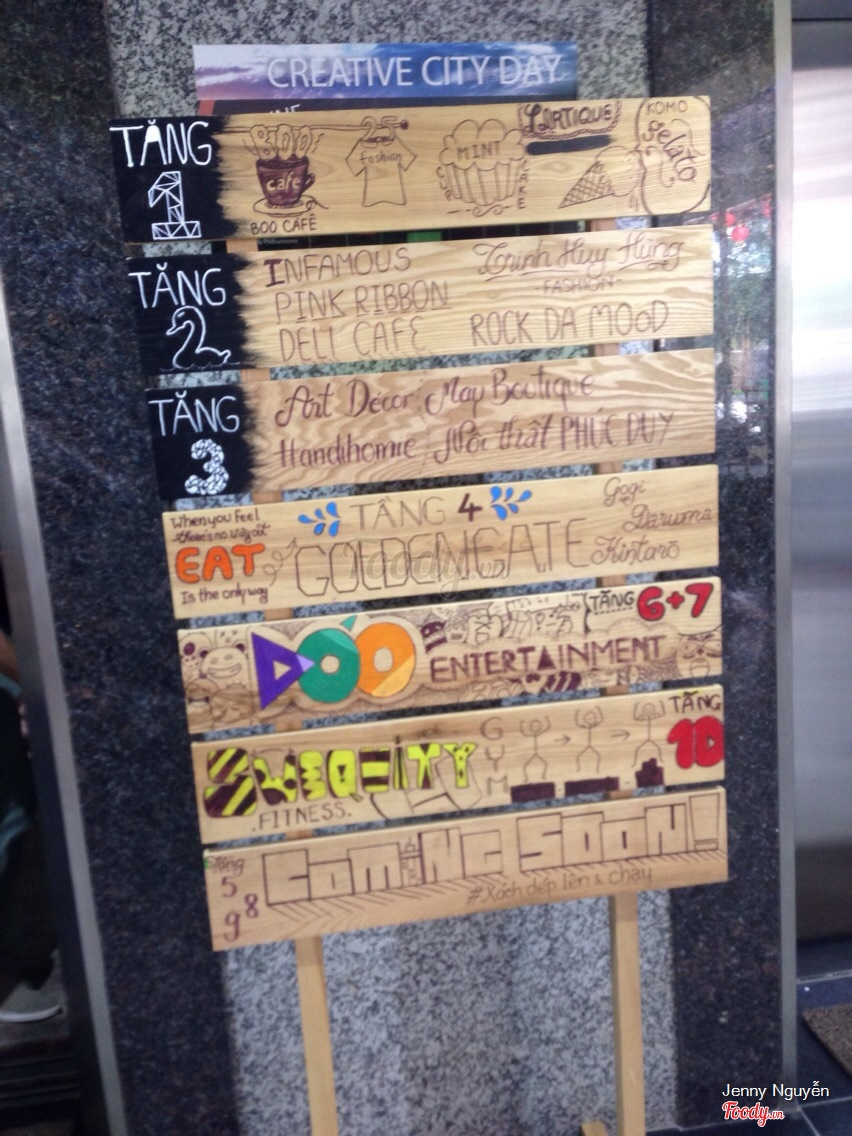 CREATIVE CITY DAY
TẦNG 1
BOO cafe
BOO CAFÊ
fashion
MINT CAKE
L'ARTIQUE
KOMO gelato
TẦNG 2
INFAMOUS
PINK RIBBON
DELI CAFÊ
Trinh Huy Hùng
-FASHION-
ROCK DA MOOD
TẦNG 3
Art Décor; May Boutique
Handihomie; Nội thất PHÚC DUY
When you feel
there's no way out
EAT
Is the only way
TẦNG 4
GOLDENGATE
Gogi
Daruma
Kintaro
DOO
ENTERTAINMENT
TẦNG 6+7
FITNESS.
GYM
TẦNG 10
Tầng
5
8
9
COMING SOON!
#Xách dép lên & chạy
Foody.vn
Jenny Nguyễn
Foody.vn